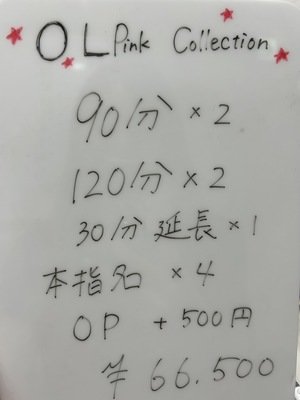 OL Pink Collection
90分 × 2
120分 × 2
30分 延長 × 1
本指名 × 4
OP + 500円
¥ 66.500